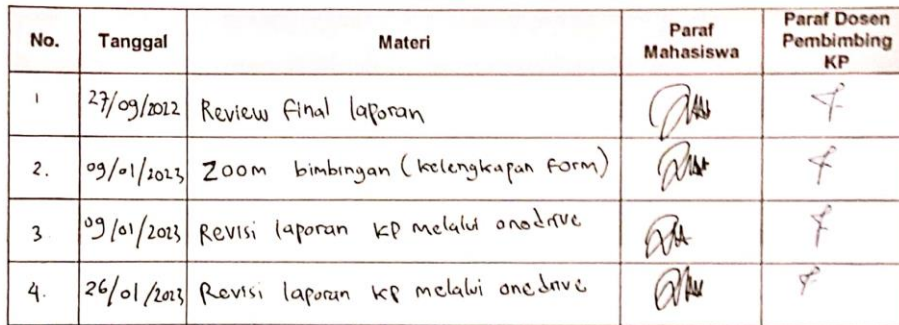 No. Tanggal Materi Paraf Mahasiswa Paraf Dosen Pembimbing KP
1 27/09/2022 Review final laporan
2. 09/01/2023 Zoom bimbingan (kelengkapan form)
3. 09/01/2023 Revisi laporan KP melalui onedrive
4. 26/01/2023 Revisi laporan KP melalui onedrive